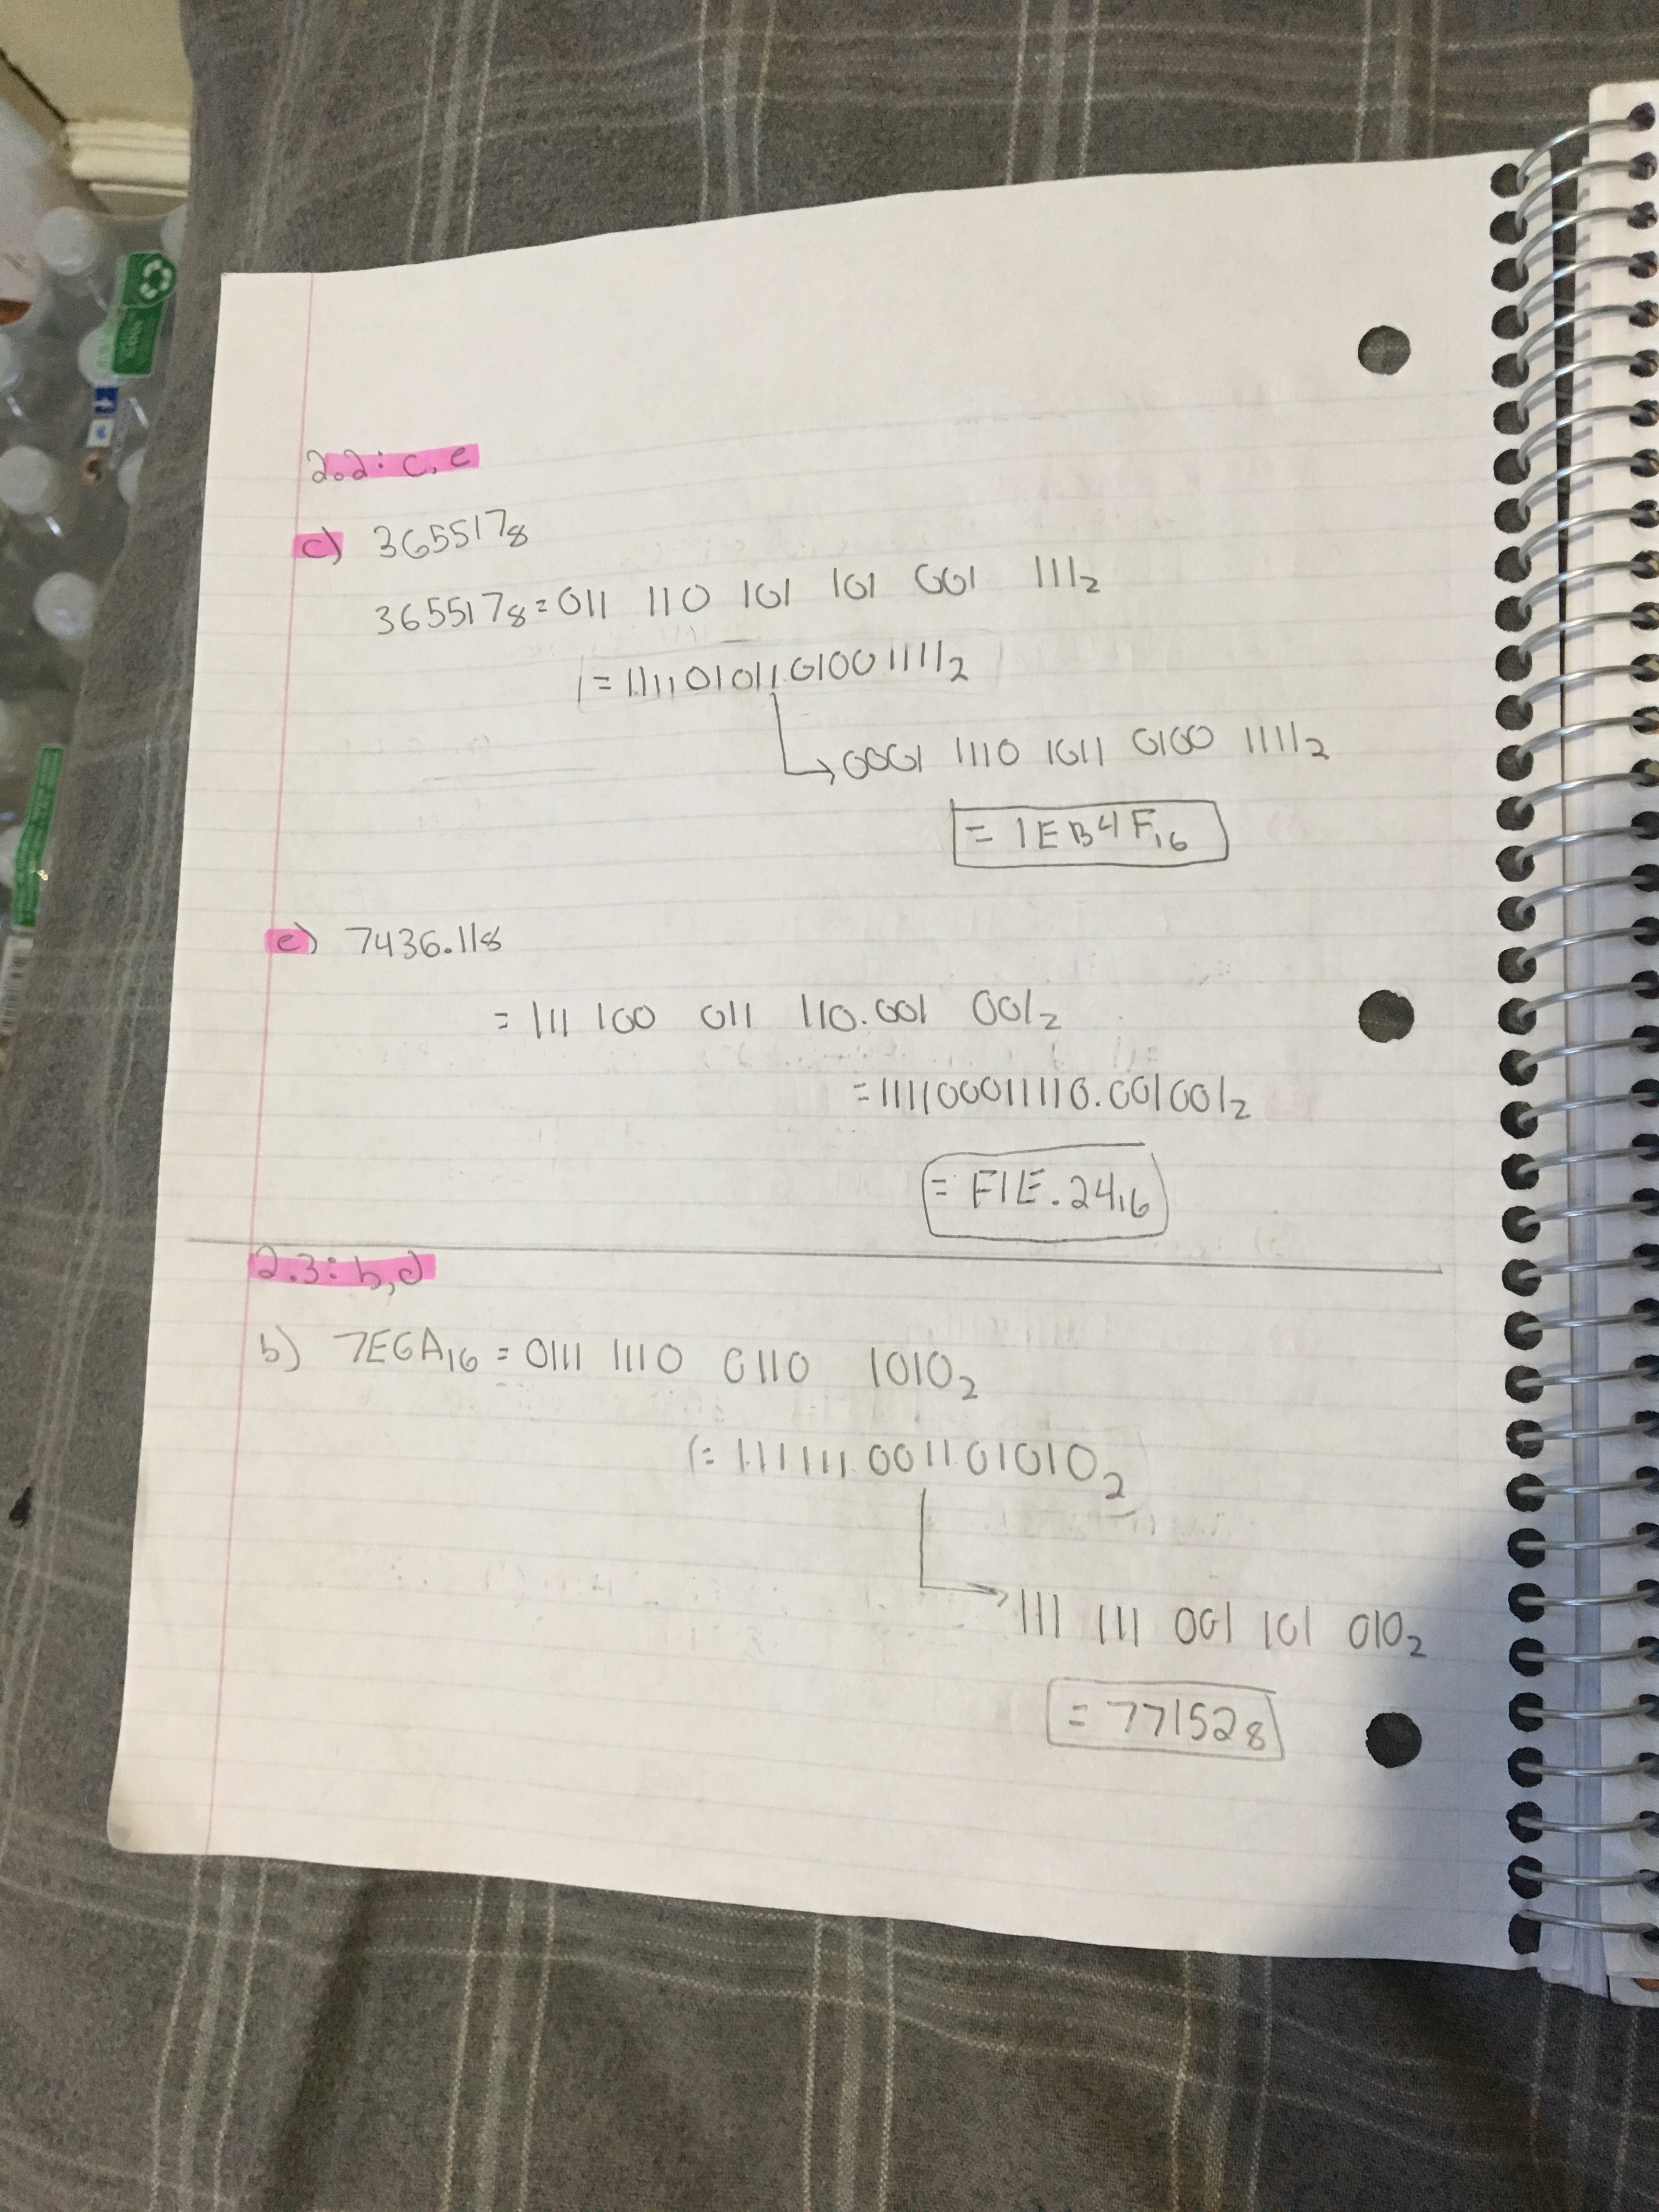 2.2: c, e
c) 365517₈
365517₈ = 011 110 101 101 001 111₂
= 11110101101001111₂
→ 0001 1110 1011 0100 1111₂
= 1EB4F₁₆
e) 7436.11₈
= 111 100 011 110.001 001₂
= 111100011110.001001₂
= F1E.24₁₆
2.3: b,d
b) 7E6A₁₆ = 0111 1110 0110 1010₂
(= 111111001101010₂
→ 111 111 001 101 010₂
= 77152₈